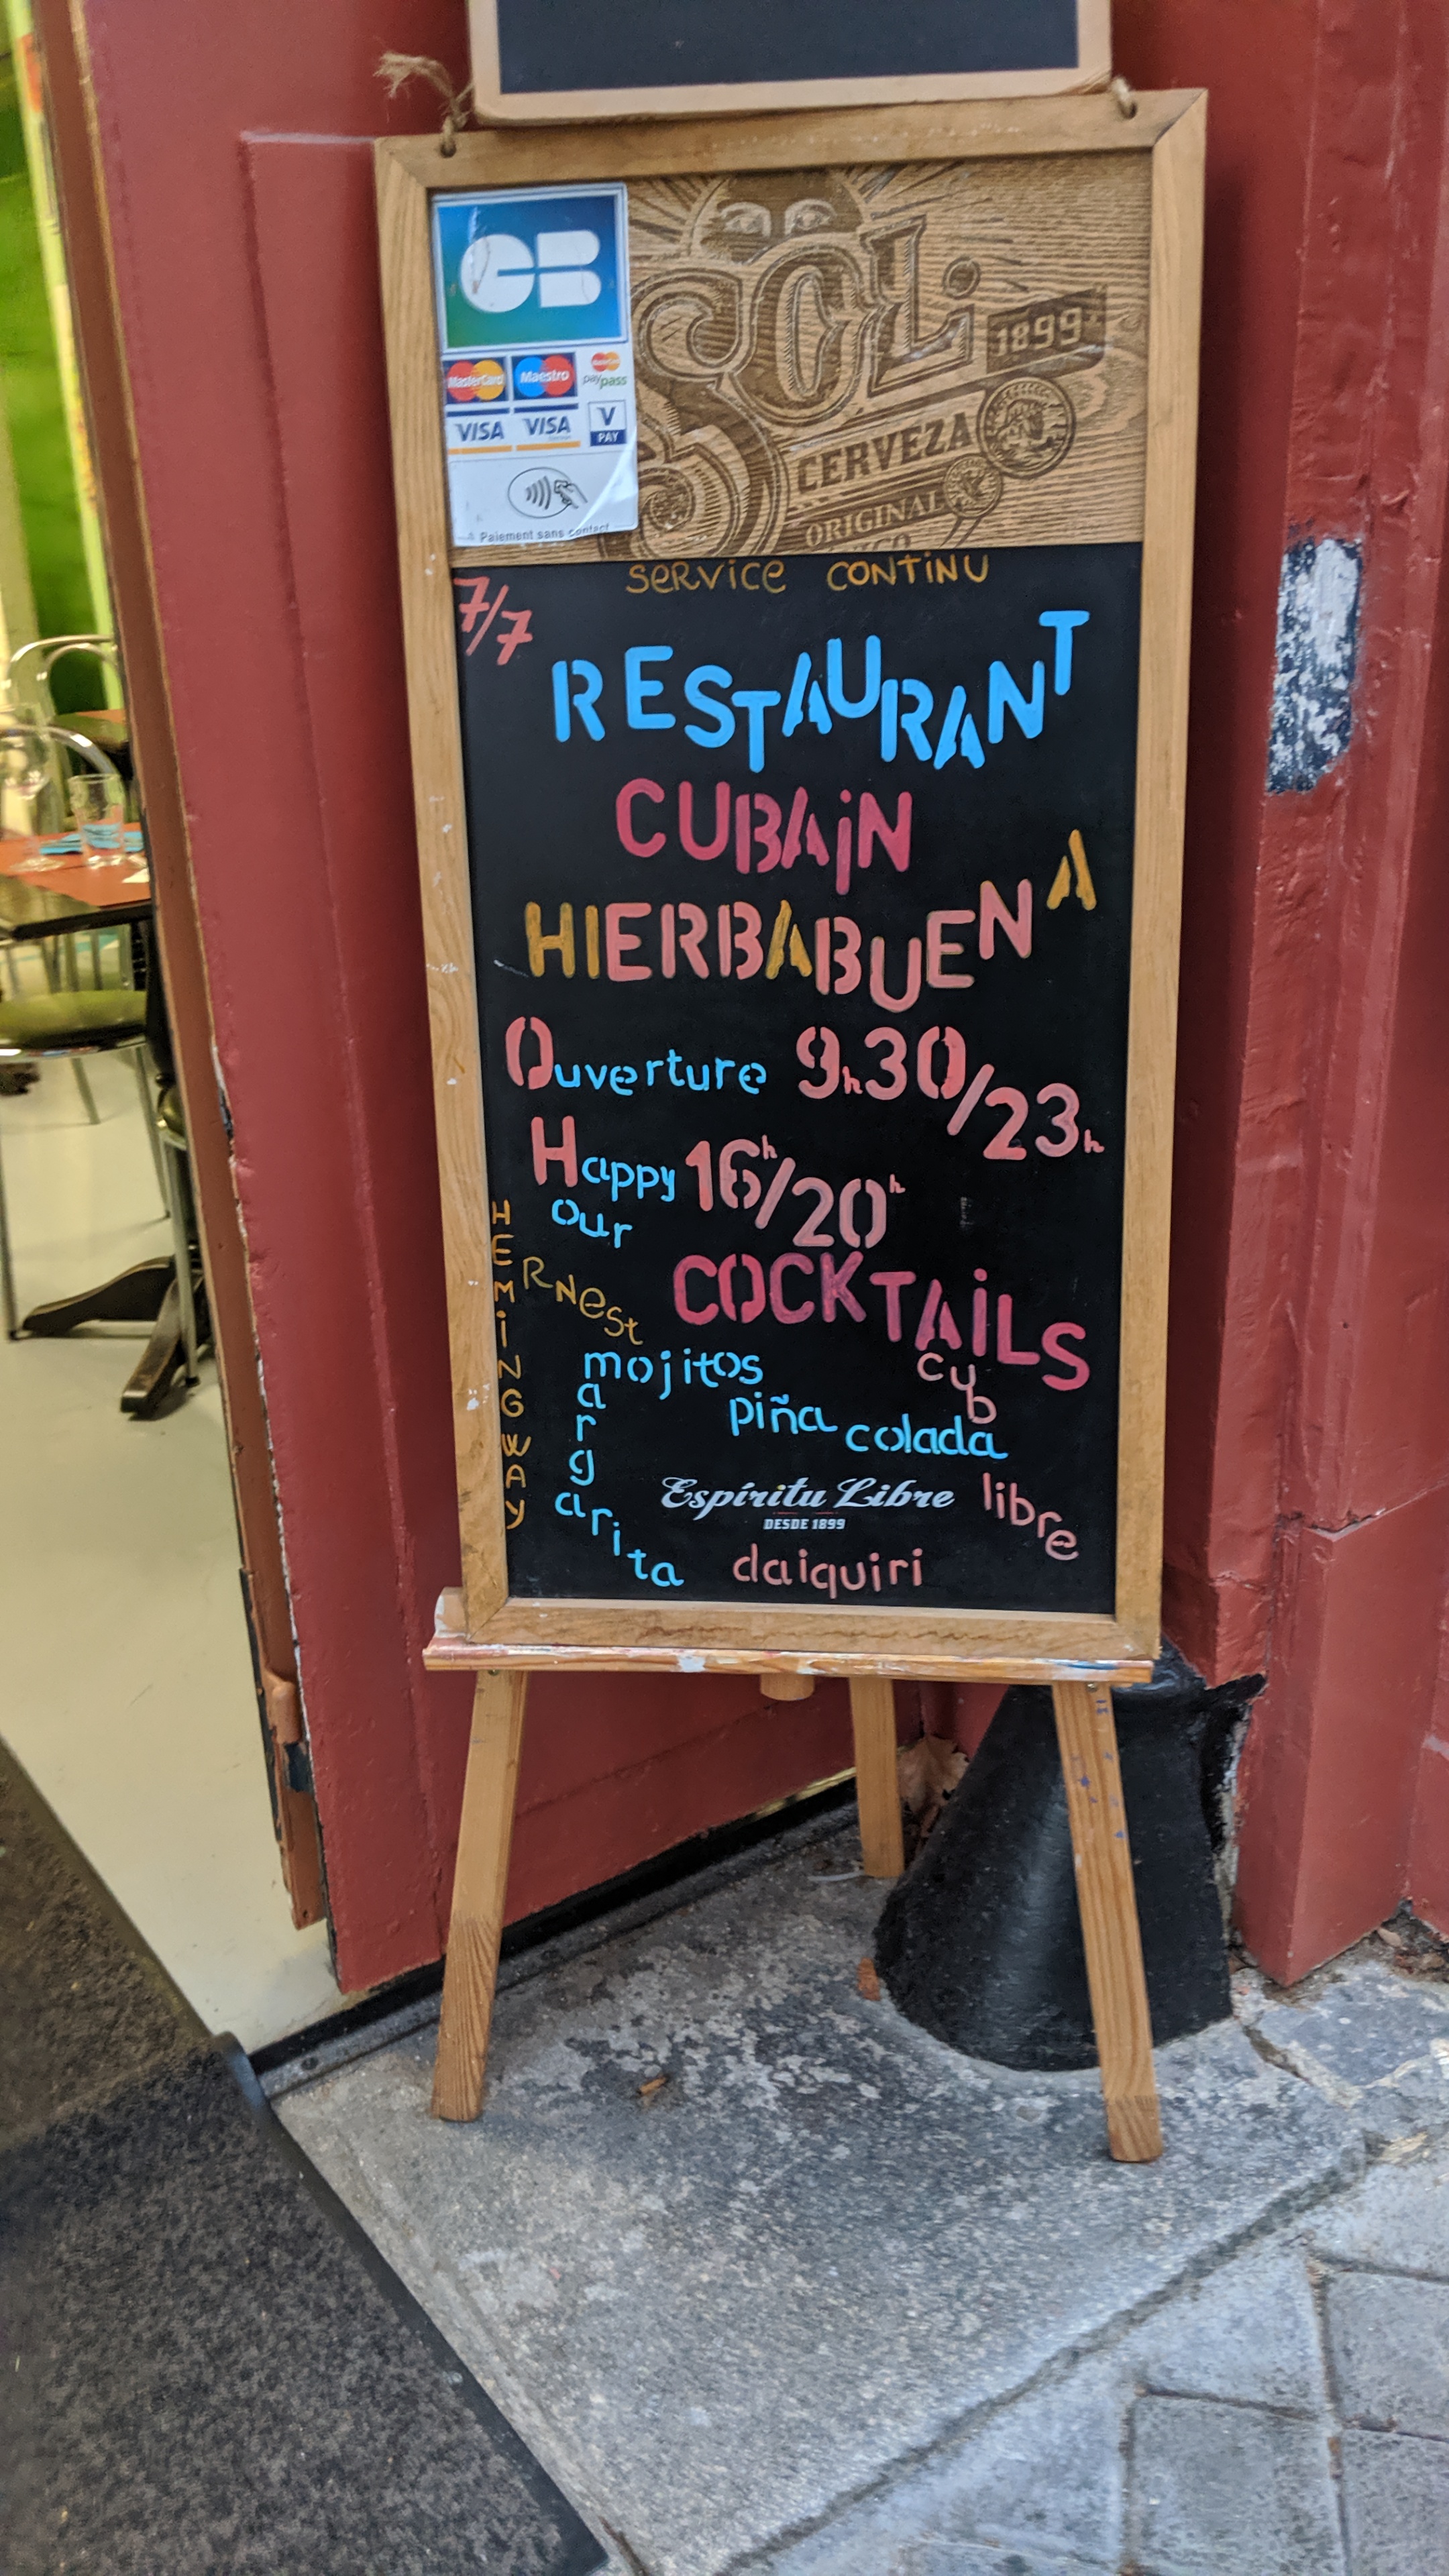 CB
MasterCard Maestro MasterCard paypass
VISA VISA V PAY
Paiement sans contact
SOL
1899
CERVEZA
ORIGINAL
SERVICE CONTINU
7/7
RESTAURANT
CUBAIN
HIERBABUENA
Ouverture 9h30/23h
Happy 16h/20h
our
COCKTAILS
HEMINGWAY
ERNEST
mojitos
margarita
piña colada
cub
libre
Espíritu Libre
DESDE 1899
daiquiri